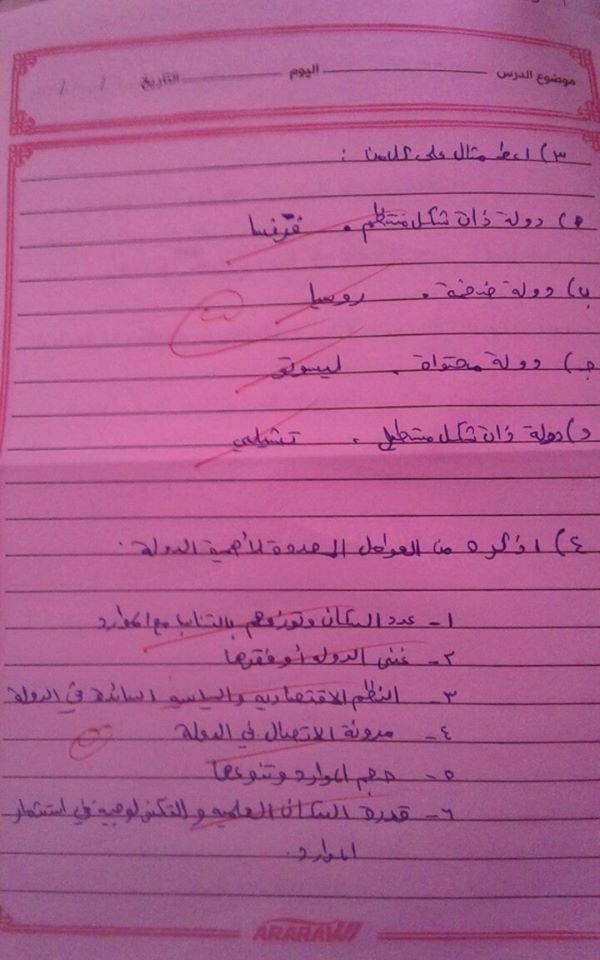 موضوع الدرس اليوم التاريخ / /
٣) اعط مثال على كل من :
أ) دولة ذات شكل منتظم . فرنسا
ب) دولة ضخمة . روسيا
جـ) دولة محتواة . ليسوتو
د) دولة ذات شكل مستطيل . تشيلي
٤) اذكر ٥ من العوامل المحددة لأهمية الدولة .
١- عدد السكان وتوزعهم بالتناسب مع الموارد
٢- غنى الدولة أو فقرها
٣- النظم الاقتصادية والسياسية السائدة في الدولة
٤- مرونة الاتصال في الدولة
٥- حجم الموارد وتنوعها
٦- قدرة السكان العلمية والتكنولوجية في استثمار
الموارد .